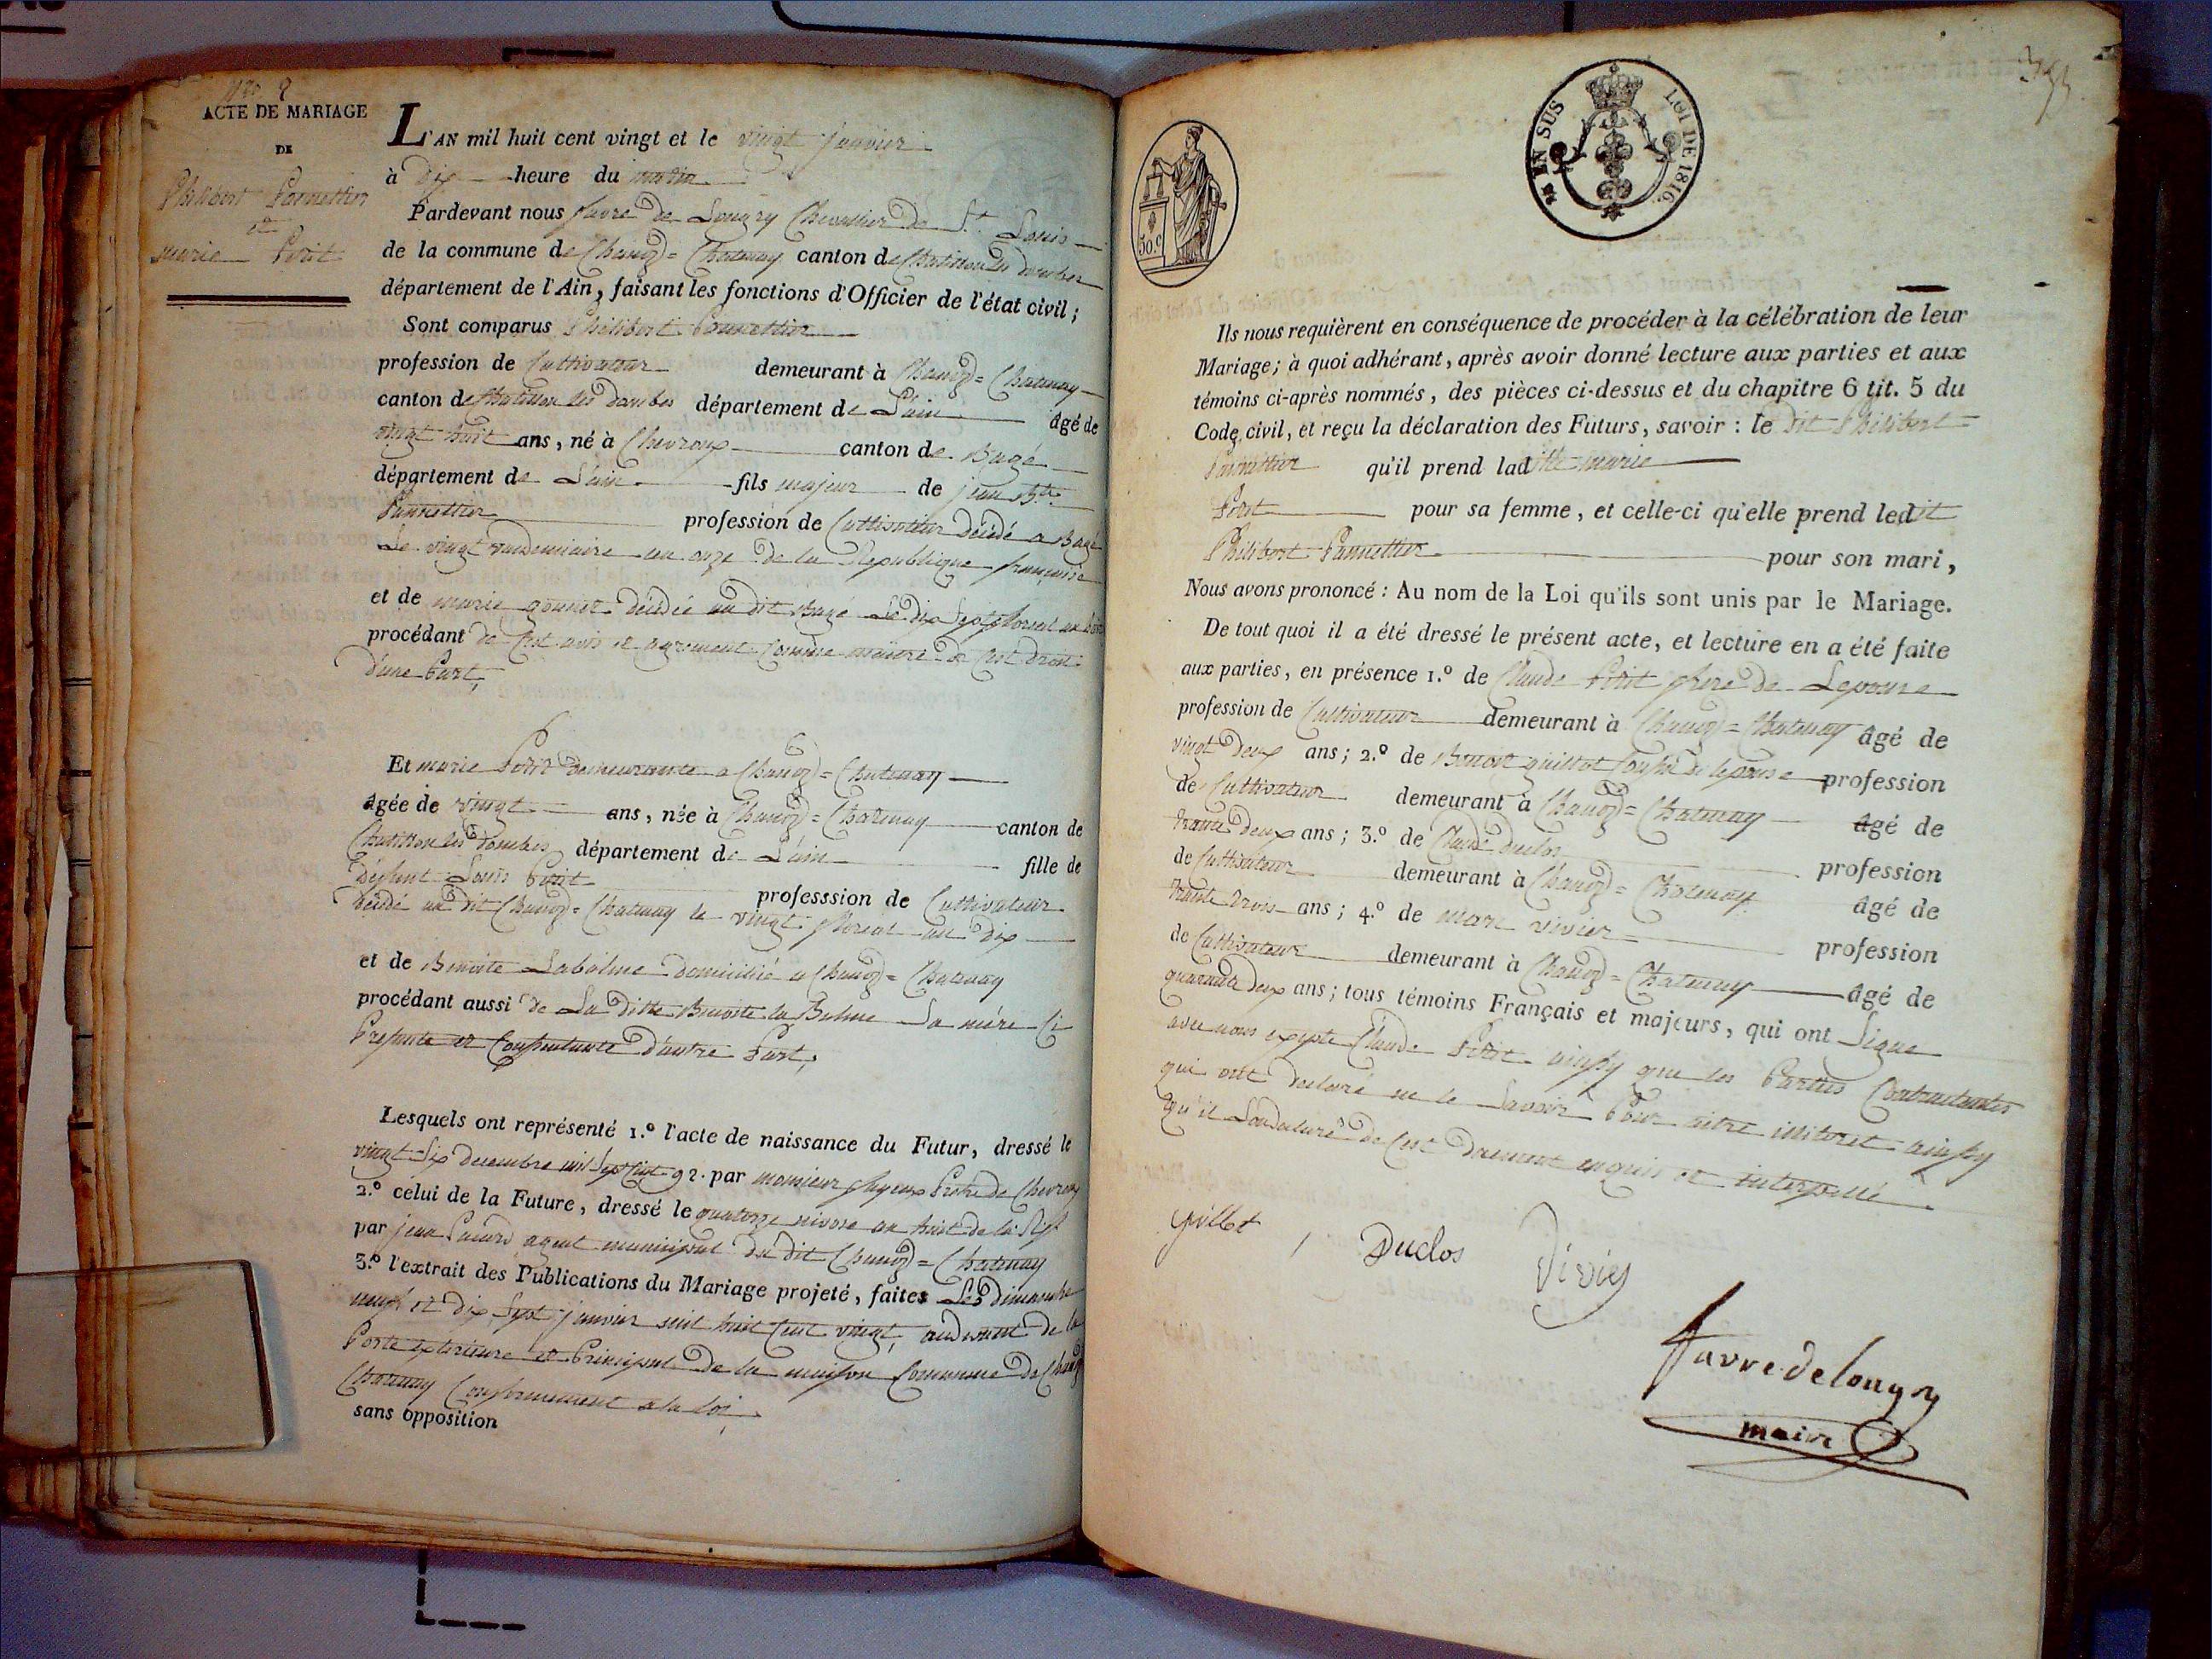 ACTE DE MARIAGE
DE
Philibert Pannettier
et
marie Petit
L'AN mil huit cent vingt et le vingt Janvier
à Dix heure du matin
Pardevant nous favre de Longry Chevallier de St. Louis
de la commune de Chanoz=Chatenay canton de Chatillon les dombes
département de l'Ain, faisant les fonctions d'Officier de l'état civil;
Sont comparus Philibert Pannettier
profession de Cultivateur demeurant à Chanoz=Chatenay
canton de Chatillon les dombes département de L'ain âgé de
vingt huit ans, né à Chevroux canton de Bagé
département de L'ain fils majeur de jean Bte
Pannettier profession de Cultivateur décédé a Bagé
Le vingt vendemiaire an onze de la Republique française
et de marie gonnet décédée au dit Bage Le dix Sept floreal an
procédant de Cest avis et agrement Comme maitre de Cest droit
d'une Part,
Et marie Petit demeurante a Chanoz=Chatenay
âgée de vingt ans, née à Chanoz=Chatenay canton de
Chatillon les dombes département de L'ain fille de
défunt Louis Petit professsion de Cultivateur
décédé au dit Chanoz=Chatenay le vingt floreal an dix
et de Benoite Labalme domicilié a Chanoz=Chatenay
procédant aussi de La ditte Benoite la Balme Sa mére Ci
Presente et Consentante D'autre Part,
Lesquels ont représenté 1.º l'acte de naissance du Futur, dressé le
vingt Six decembre mil Sept Cent 92. par monsieur Prêtre de Chevroux
2.º celui de la Future, dressé le quatorze nivose an huit de la Rep
par jean agent municipal du dit Chanoz=Chatenay
3.º l'extrait des Publications du Mariage projeté, faites Les dimanche
neuf et dix Sept janvier mil huit Cent vingt, audevant de la
Porte exterieure et Principal de la maison Commune de Chanoz
Chatenay Conformement a la loi,
sans opposition
50.c
EN SUS
LOI DE 1816.
Ils nous requièrent en conséquence de procéder à la célébration de leur
Mariage; à quoi adhérant, après avoir donné lecture aux parties et aux
témoins ci-après nommés, des pièces ci-dessus et du chapitre 6 tit. 5 du
Code civil, et reçu la déclaration des Futurs, savoir: le dit Philibert
Pannettier qu'il prend laditte marie
Petit pour sa femme, et celle-ci qu'elle prend ledit
Philibert Pannettier pour son mari,
Nous avons prononcé: Au nom de la Loi qu'ils sont unis par le Mariage.
De tout quoi il a été dressé le présent acte, et lecture en a été faite
aux parties, en présence 1.º de Claude Petit frere de Lepouse
profession de Cultivateur demeurant à Chanoz=Chatenay âgé de
vingt deux ans; 2.º de Benoit guillot Cousin de lepouse profession
de Cultivateur demeurant à Chanoz=Chatenay âgé de
trante deux ans; 3.º de Claude duclos profession
de Cultivateur demeurant à Chanoz=Chatenay âgé de
trante trois ans; 4.º de marc vivier profession
de Cultivateur demeurant à Chanoz=Chatenay âgé de
quarante deux ans; tous témoins Français et majeurs, qui ont Signe
avec nous excepte Claude Petit ainsy que les Parties Contractantes
qui ont declaré ne le Savoir Pour aitre illiteret ainsy
qu'il de Cest Duement enquis et interpellé
Guillot
Duclos
Vivier
favre de longry
maire